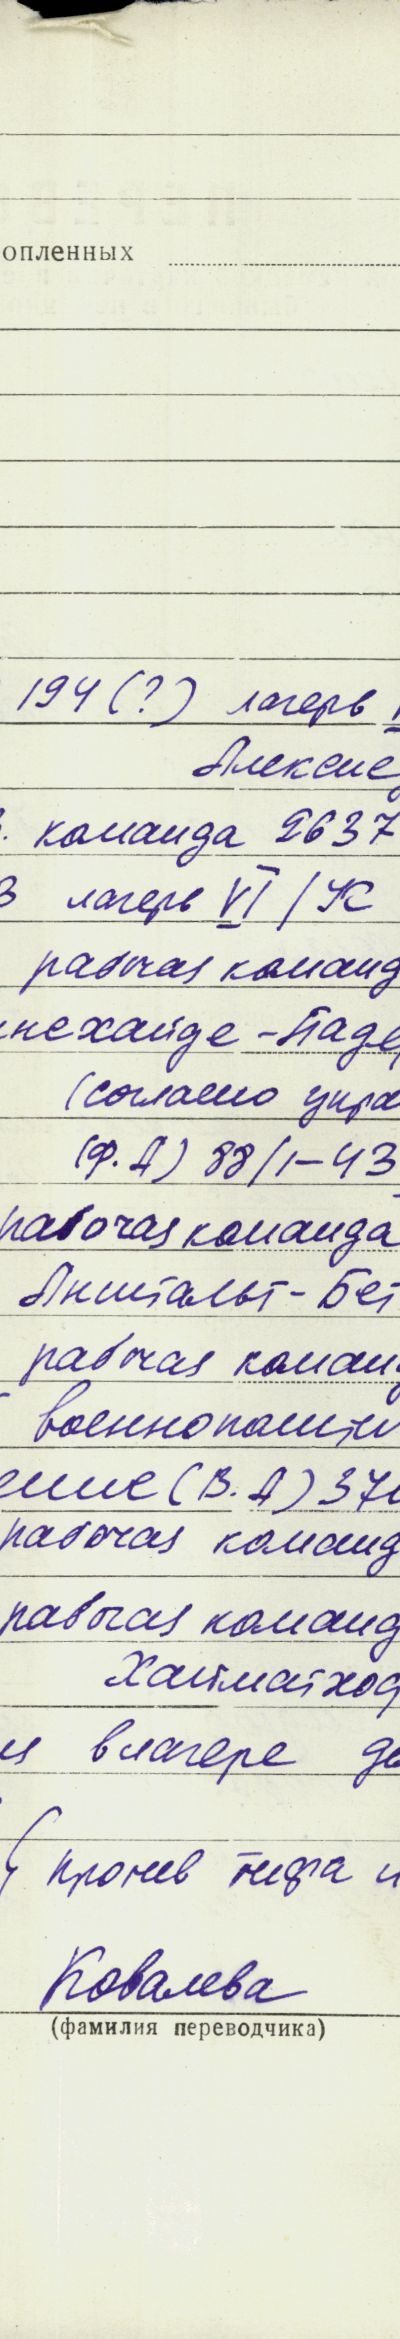 опленных
194 (?) лагерь
Алексис
команда 2637
В лагерь VI/К
рабочая команд
нехайде - Паде
(согласно упра
(Ф.А) 88/1-43
рабочая команда
Анштальт - Бет
рабочая команд
военнопленн
ение (В.А) 37
рабочая команд
рабочая команд
Хайматхоф
в лагере
против тифа и
Ковалева
(фамилия переводчика)